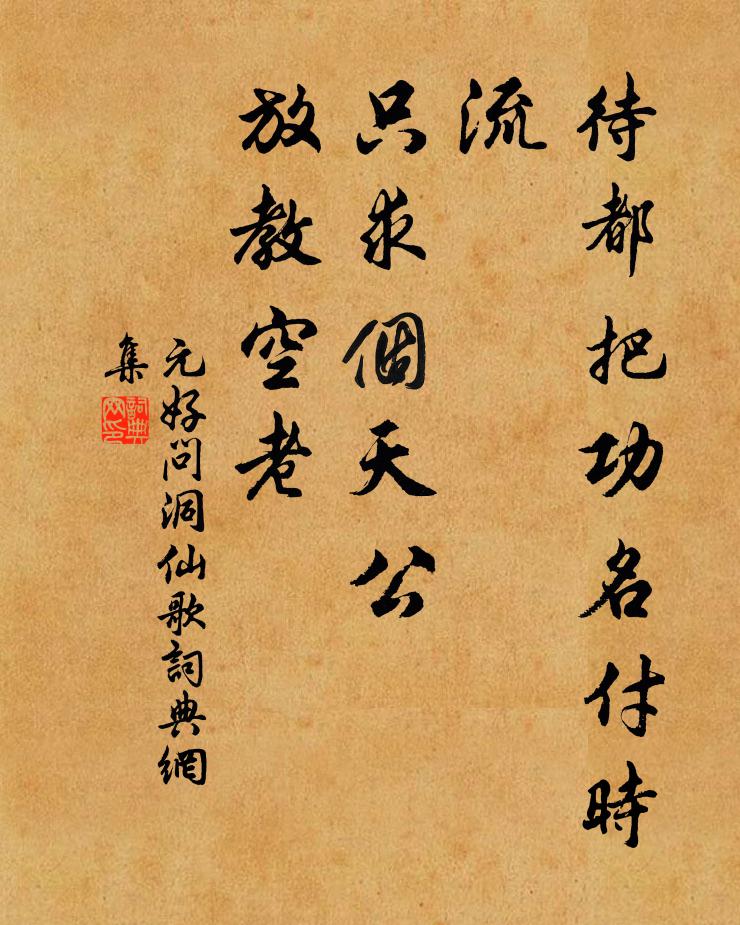 待都把功名付時
流
只求個天公
放教空老
元好問洞仙歌詞典網
集
詞典
网印